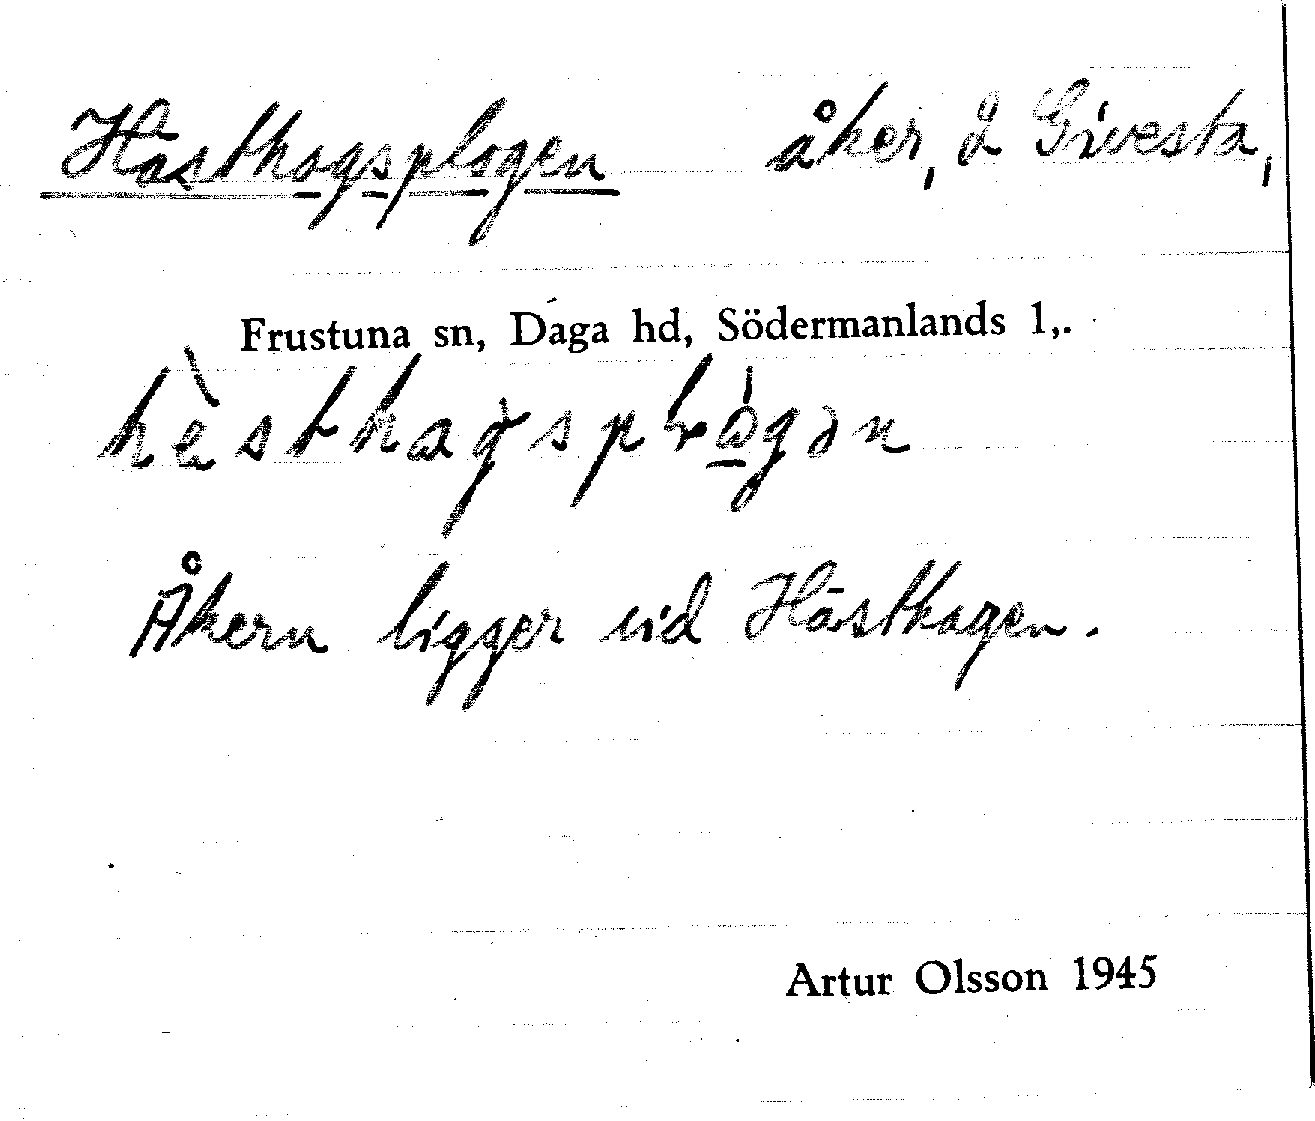 Hästhagsplogen åker, 2 Givesta,
Frustuna sn, Daga hd, Södermanlands l,.
Åkern ligger vid Hästhagen.
Artur Olsson 1945